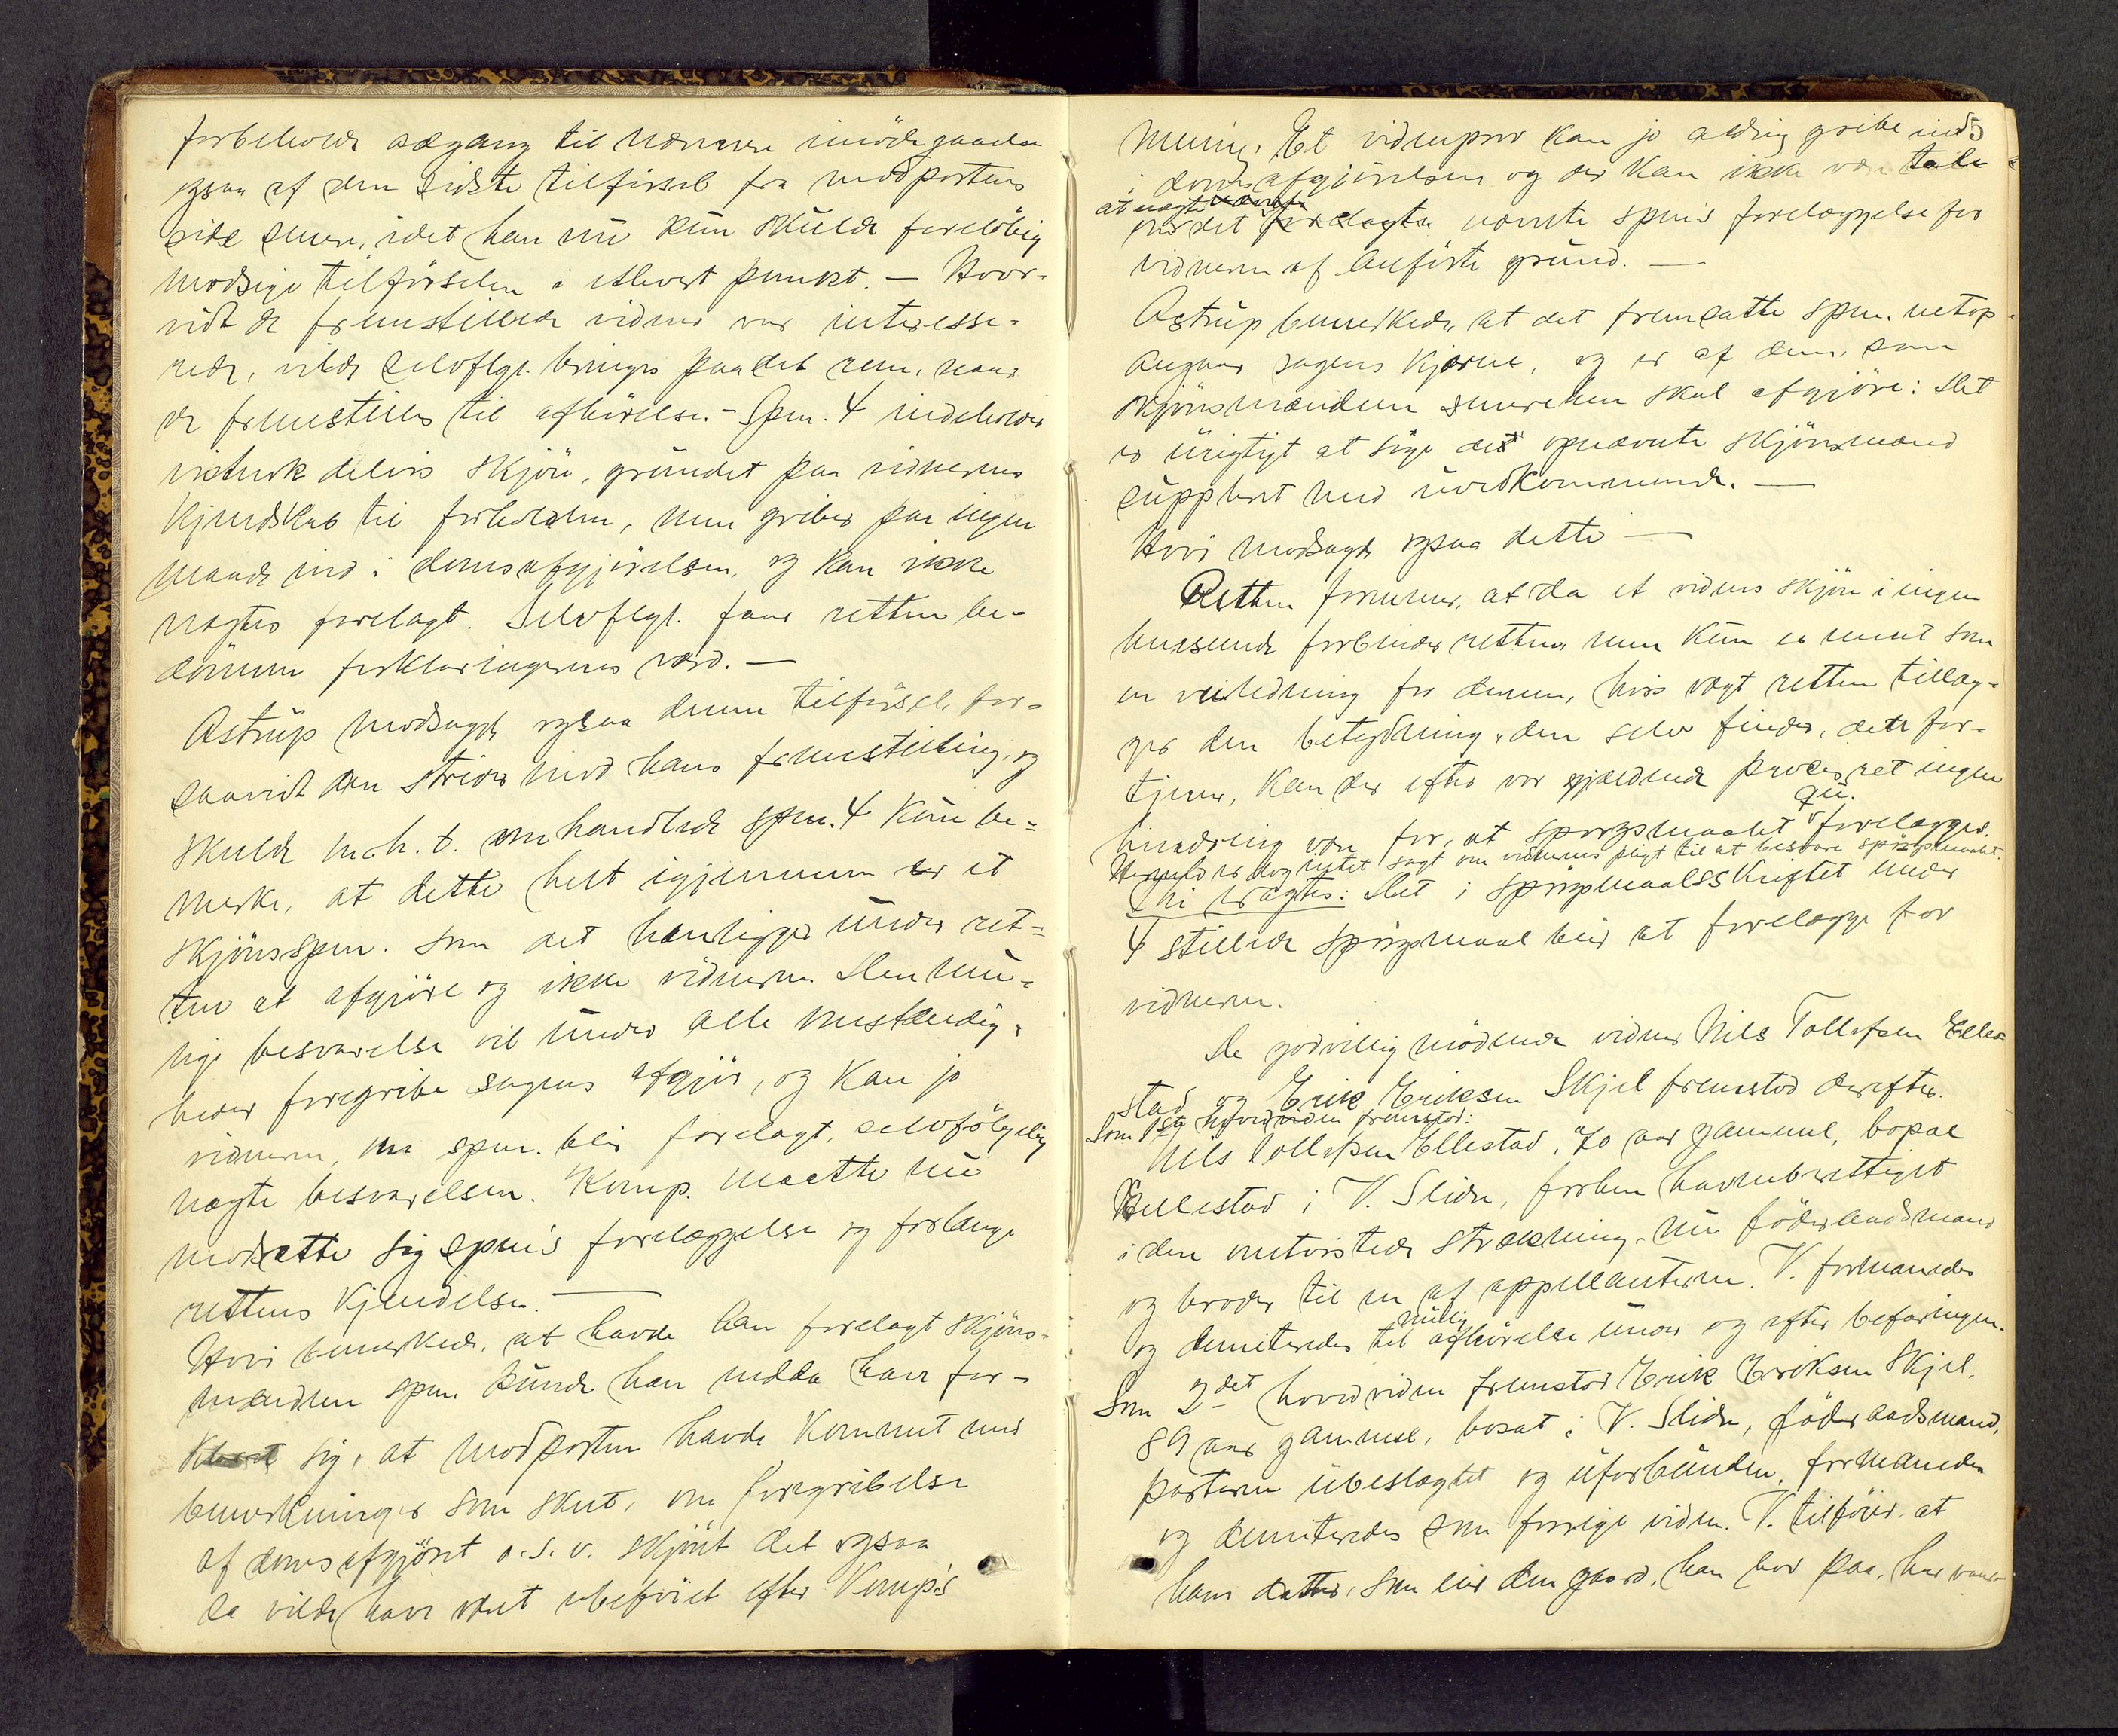 forbeholdt adgang til nærmere imødegaaelse
ogsaa af den sidste tilførsel fra modpartens
side senere, idet han nu kun skulde foreløbig
modsige tilførselen i ethvert punkt. — Hvor-
vidt de fremstillede vidner var interesse-
rede, vilde selvflgl. bringes paa det rene, naar
de fremstilles til afhørelse. — Spm. 4 indeholder
delvis skjøn, grundet paa vidnernes
kjendskab til forholdene, men griber paa ingen
maade ind i domsafgjørelsen, og kan ikke
nægtes forelagt. Selvflgl. faar retten be-
dømme forklaringernes værd. —
Astrup modsagde ogsaa denne tilførsel, for-
saavidt den strider mod hans fremstilling, og
skulde m. h. t. omhandlede spm. 4 kun be-
merke, at dette helt igjennem er et
skjønsspm. som det henligger under ret-
ten at afgjøre og ikke vidnerne. Den
besvarelse vil under alle omstændig-
heder foregribe sagens afgjør, og kan jo
vidnerne, om spm. blir forelagt, selvfølgelig
nægte besvarelsen. Komp. maatte nu
modsætte sig spm's forelæggelse og forlange
rettens kjendelse. —
Hovi bemerkede, at havde han forelagt skjøns-
mændene spm. kunde han endda have for-
klaret sig, at modparten havde kommet med
bemerkninger som skeet, om foregribelse
af domsafgjøret o. s. v. skjønt det ogsaa
da vilde have været ubeføiet efter Komp's
mening. Et vidneprov kan jo aldrig gribe ind
i domsafgjørelsen og der kan ikke være tale om
at nægte
det nævnte spm's forelæggelse for
vidnerne af anførte grund. —
Astrup bemerkede, at det fremsatte spm. netop
angaar sagens kjerne, og er af dem, som
skjønsmændene senerehen skal afgjøre: Det
er urigtigt at sige det opnævnte skjønsmænd
suppleret med uvedkommende. —
Hovi modsagde ogsaa dette —
Retten formener, at da et vidnes skjøn i ingen
henseende forbinder retten, men kun er ment som
en veiledning for denne, hvis vægt retten tillæg-
ger den betydning, den selv finder, dette for-
tjener, kan der efter vor gjældende procesret ingen
hindring være for, at spørgsmaalet qu. forelægges.
Hermed er dog intet sagt om vidnernes pligt til at besvare spørgsmaalet.
Thi eragtes: Det i spørgsmaalsskriftet under
4 stillede spørgsmaal blir at forelægge for
vidnerne.
De godvillig mødende vidner Nils Tollefsen Elle-
stad og Erik Eriksen Skjel fremstod derefter.
Som 1ste hovedvidne fremstod:
Nils Tollefsen Ellestad, 70 aar gammel, bopæl
Hellestad i V. Slidre, forhen havneberettiget
i den omtvistede strækning, nu føderaadsmand
og broder til en af appellanterne. V. formanedes
og demiteredes til mulig afhørelse under og efter befaringen.
Som 2det hovedvidne fremstod Erik Eriksen Skjel,
89 aar gammel, bosat i V. Slidre, føderaadsmand,
parterne ubeslægtet og uforbunden, formanedes
og demiteredes som forrige vidne. V. tilføier, at
hans datter, som eier den gaard, han bor paa, har